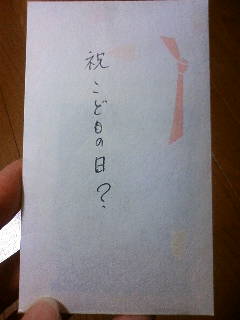 祝こどもの日?